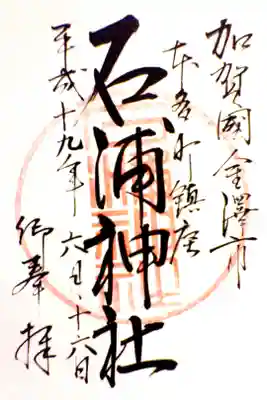 加賀國金澤市
本多町鎮座
石浦神社
平成十九年六月十六日
御奉拝